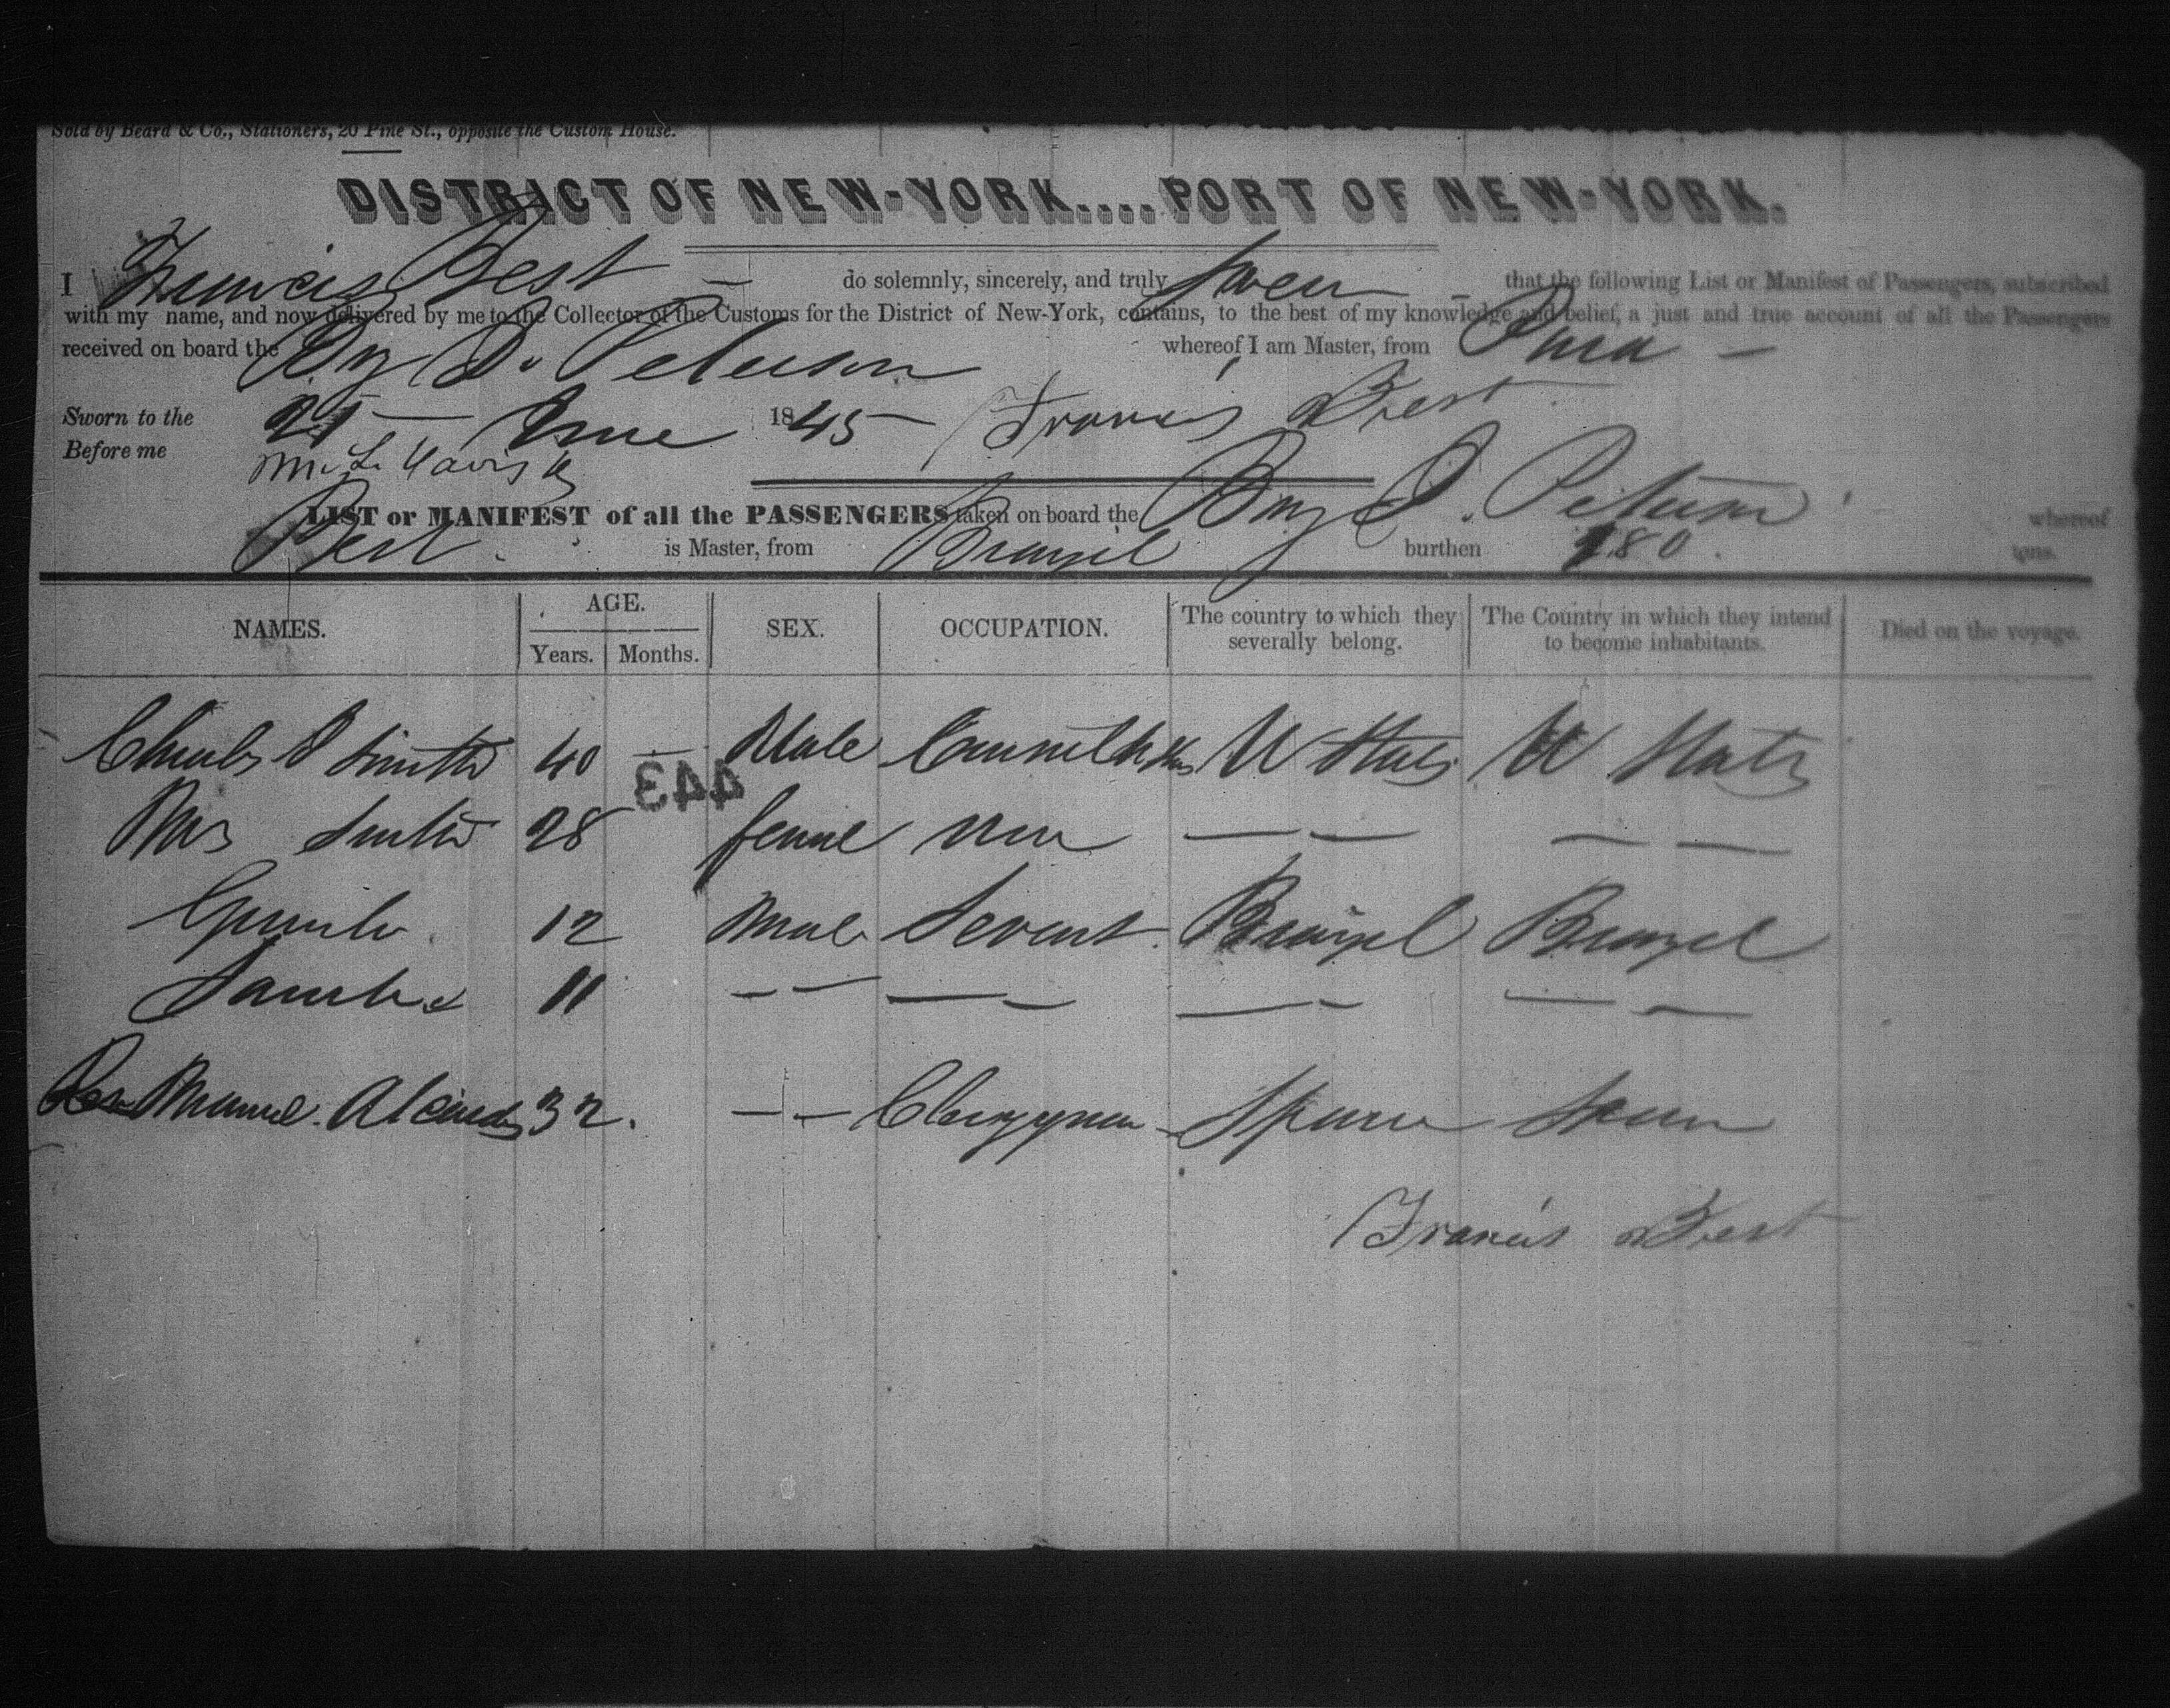 Sold by Beard & Co., Stationers, 20 Pine St., opposite the Custom House.
DISTRICT OF NEW-YORK....PORT OF NEW-YORK.
I Francis Best — do solemnly, sincerely, and truly swear — that the following List or Manifest of Passengers, subscribed
with my name, and now delivered by me to the Collector of the Customs for the District of New-York, contains, to the best of my knowledge and belief, a just and true account of all the Passengers
received on board the Brig whereof I am Master, from Para —
Sworn to the 21 — June 1845 — Francis Best
Before me
LIST or MANIFEST of all the PASSENGERS taken on board the Brig whereof
Best. is Master, from Brazil burthen 180. tons.
NAMES. AGE. SEX. OCCUPATION. The country to which they severally belong. The Country in which they intend to become inhabitants. Died on the voyage.
Years. Months.
Charles Smith 40 — Male U States U States
443
Mrs Smith 28 — — — —
12 Male Servant Brazil Brazil
11 — — — — — — — —
Manuel 32. — — Clergyman Spain Spain
Francis Best